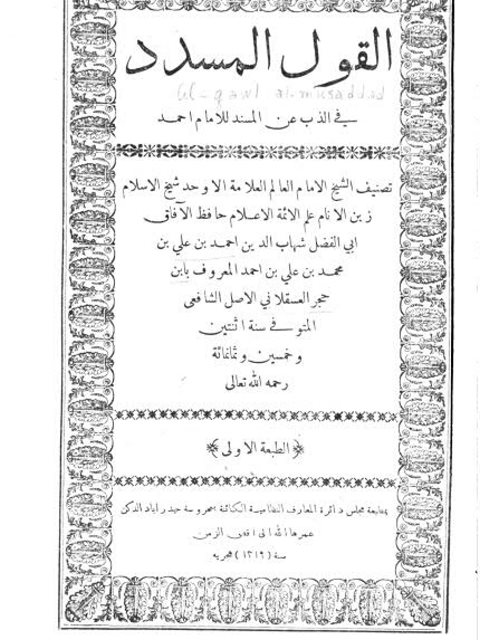 القول المسدد
al-qawl al-musaddad
في الذب عن المسند للامام احمد
تصنيف الشيخ الامام العالم العلامة الاوحد شيخ الاسلام
زين الانام علم الائمة الاعلام حافظ الآفاق
ابي الفضل شهاب الدين احمد بن علي بن
محمد بن علي بن احمد المعروف بابن
حجر العسقلاني الاصل الشافعي
المتوفى سنة اثنتين
وخمسين وثمانمائة
رحمه الله تعالى
﴿الطبعة الاولى﴾
بمطبعة مجلس دائرة المعارف النظامية الكائنة بمحروسة حيدرآباد الدكن
عمرها الله الى اقصى الزمن
سنة (١٣١٩) هجريه